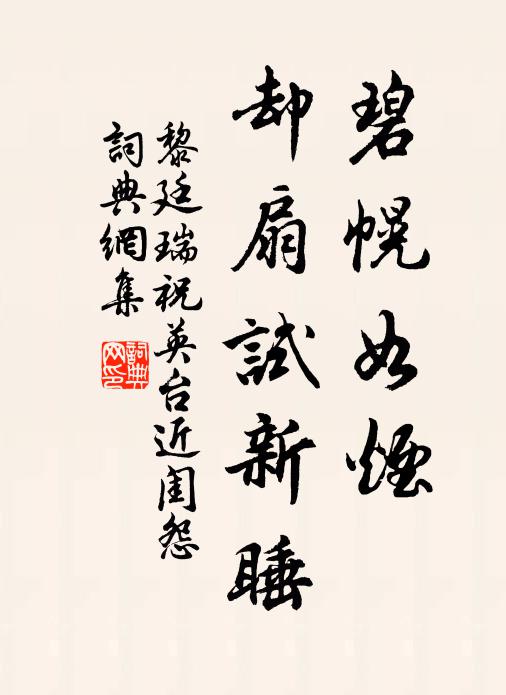 碧幌如煙
却扇試新睡
黎廷瑞祝英台近閨怨
詞典網集
詞典网印